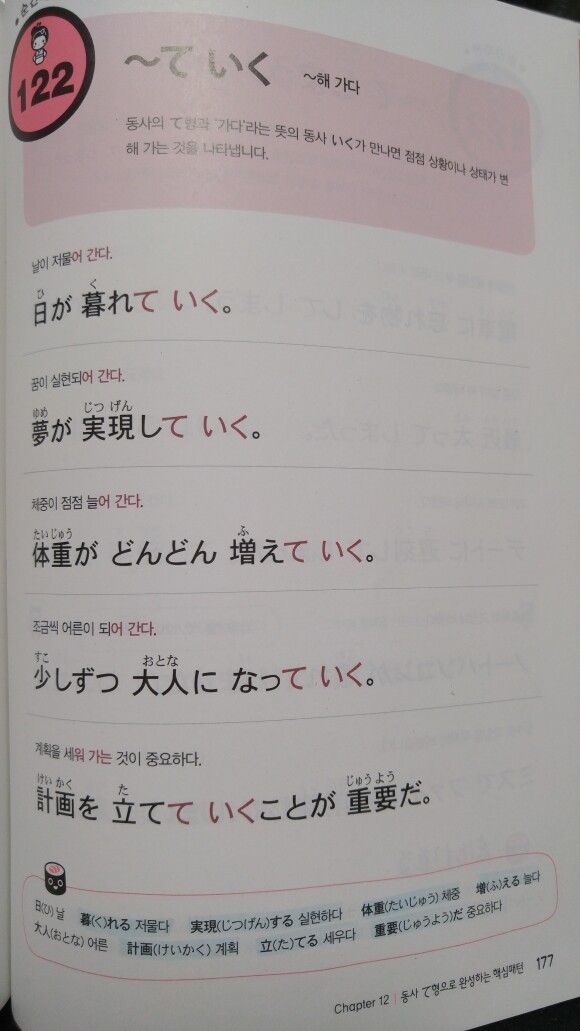 122
～て いく ～해 가다
동사의 て형과 '가다'라는 뜻의 동사 いく가 만나면 점점 상황이나 상태가 변
해 가는 것을 나타냅니다.
날이 저물어 간다.
ひ く
日が 暮れて いく。
꿈이 실현되어 간다.
ゆめ じつ げん
夢が 実現して いく。
체중이 점점 늘어 간다.
たいじゅう ふ
体重が どんどん 増えて いく。
조금씩 어른이 되어 간다.
すこ おとな
少しずつ 大人に なって いく。
계획을 세워 가는 것이 중요하다.
けい かく た じゅう よう
計画を 立てて いくことが 重要だ。
日(ひ) 날 暮(く)れる 저물다 実現(じつげん)する 실현하다 体重(たいじゅう) 체중 増(ふ)える 늘다
大人(おとな) 어른 計画(けいかく) 계획 立(た)てる 세우다 重要(じゅうよう)だ 중요하다
Chapter 12 | 동사 て형으로 완성하는 핵심패턴 177